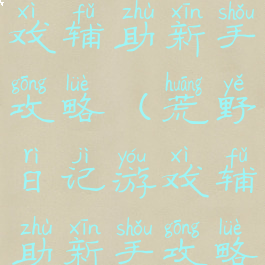 xì fǔ zhù xīn shǒu
戏辅助新手
gōng lüè huāng yě
攻略(荒野
rì jì yóu xì fǔ
日记游戏辅
zhù xīn shǒu gōng lüè
助新手攻略